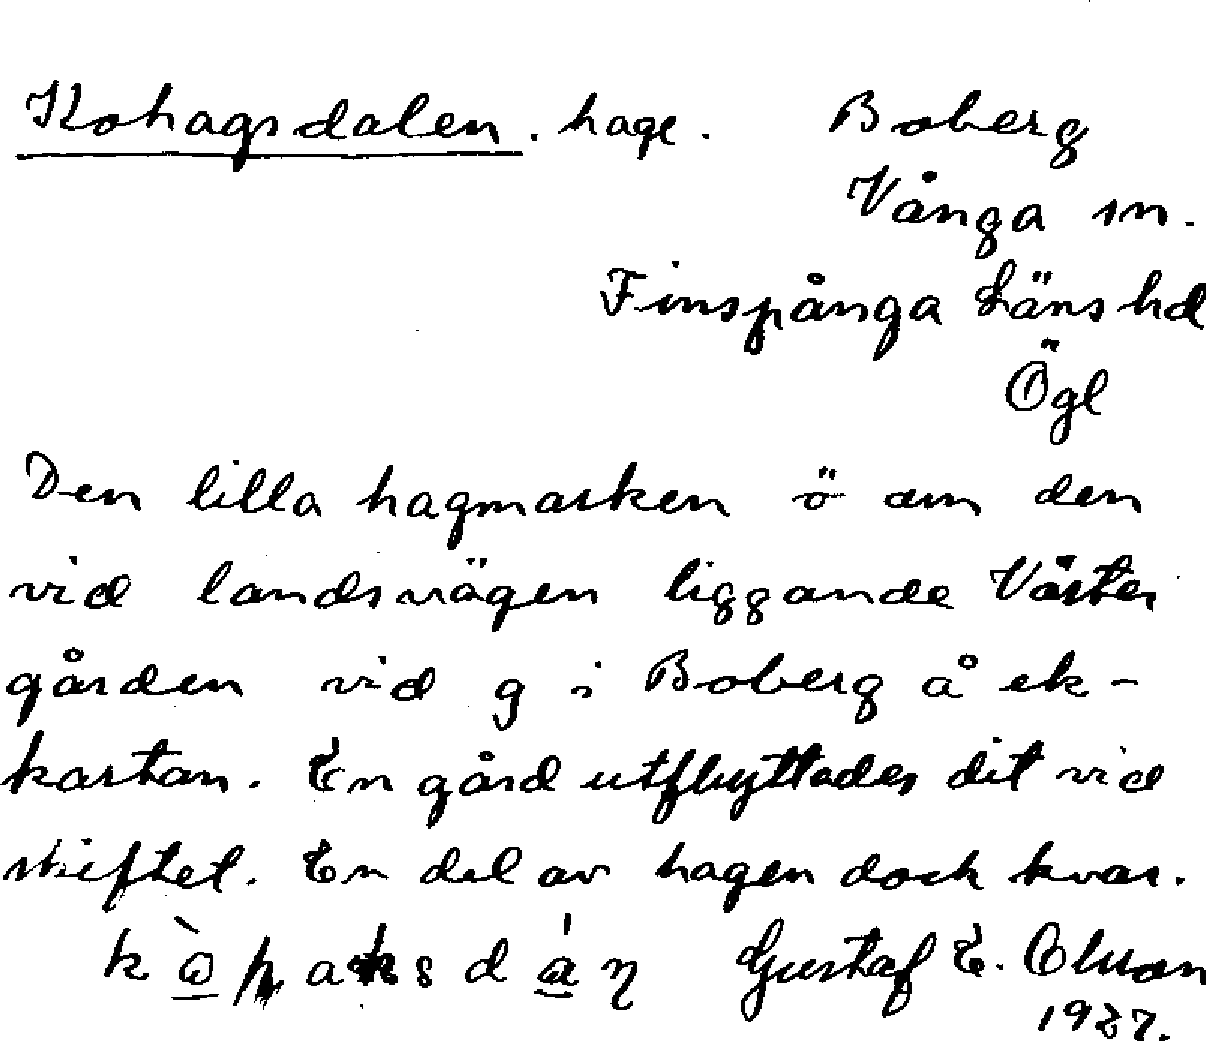 Kohagsdalen. hage. Boberg
Vånga sn.
Finspånga Läns hd
Ögl
Den lilla hagmarken ö om den
vid landsvägen liggande Väster
gården vid g i Boberg å ek-
kartan. En gård utflyttades dit vid
skiftet. En del av hagen dock kvar.
Gustaf E. Olsson
1927.